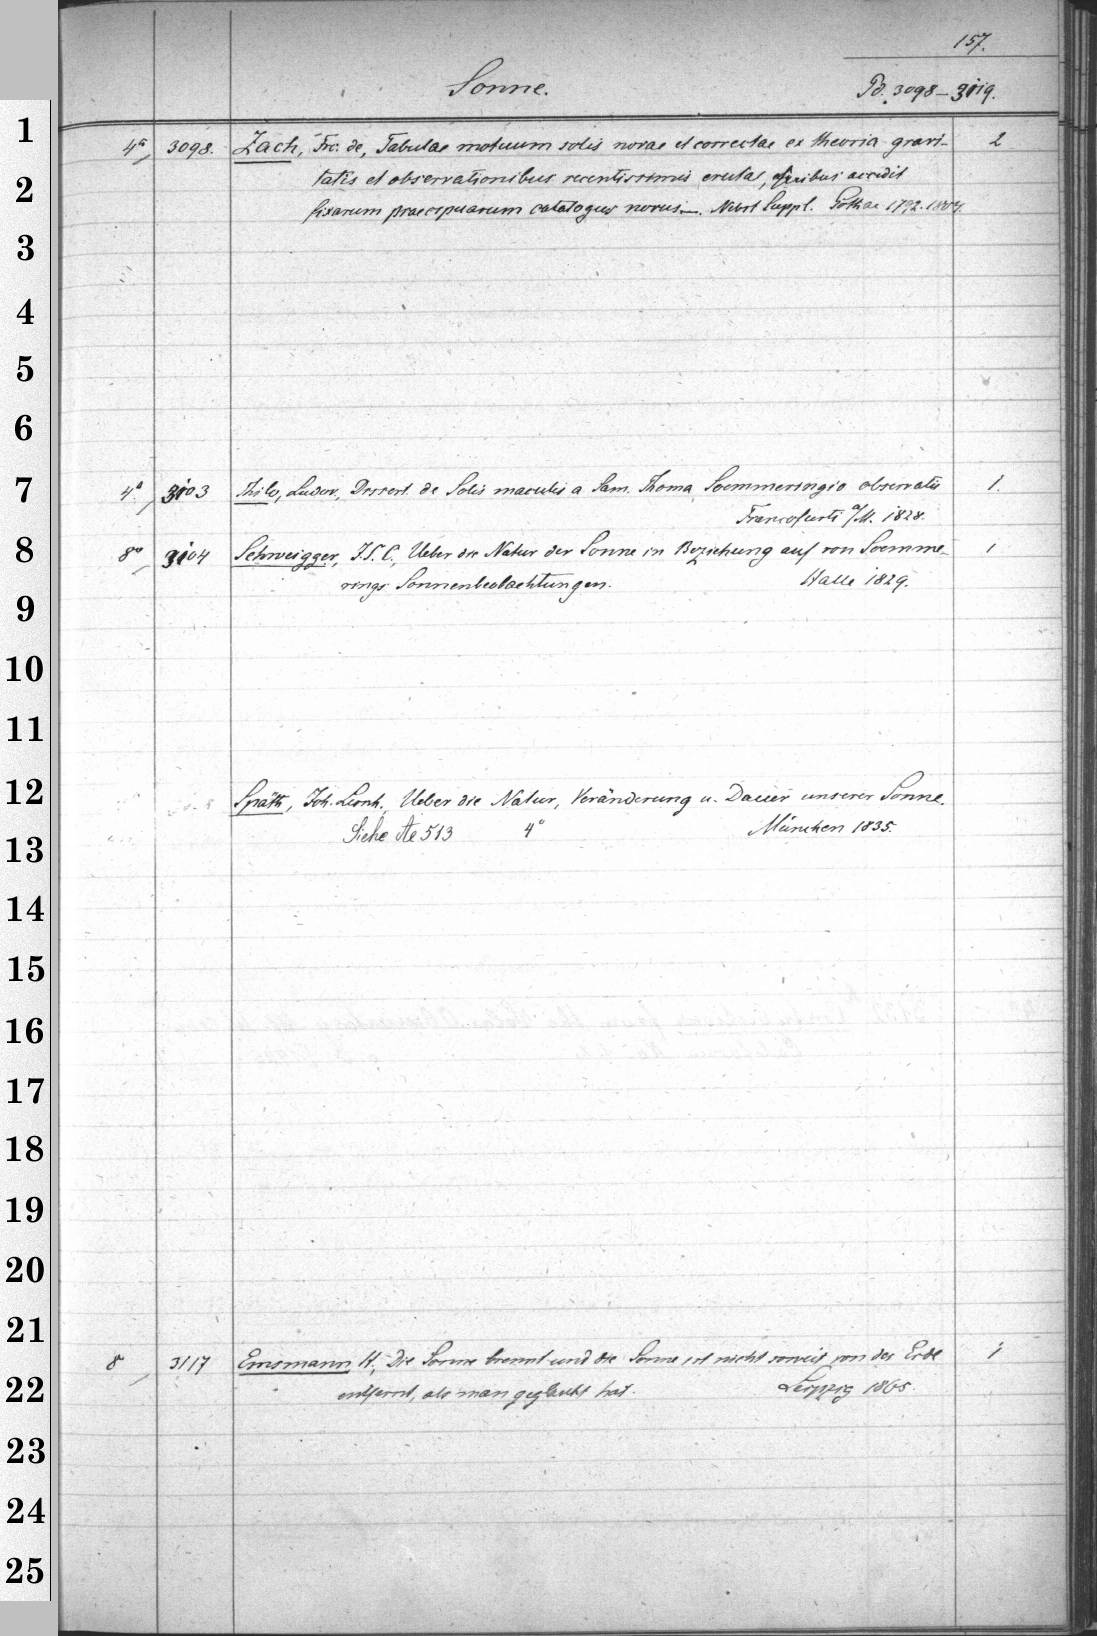 157.
Sonne. Pd. 3098-3119.
1
4° 3098. Zach, Frc. de, Tabulae motuum solis novae et correctae ex theoria gravi- 2
2
tatis et observationibus recentissimis erutae, quibus accedit
fixarum praecipuarum catalogus novus. Nebst Suppl. Gothae 1792. 1804.
3
4
5
6
7
4° 3103 Thilo, Ludov., Dissert. de Solis maculis a Sam. Thoma Soemmeringio observatis 1.
Francofurti a/M. 1828.
8
8° 3104 Schweigger, J.S.C., Ueber die Natur der Sonne in Beziehung auf von Soemme- 1
rings Sonnenbeobachtungen. Halle 1829.
9
10
11
12
Späth, Joh. Leonh., Ueber die Natur, Veränderung u. Dauer unserer Sonne.
Siehe Ae 513 4° München 1835.
13
14
15
16
17
18
19
20
21
8 3117 Emsmann H., Die Sonne brennt und die Sonne ist nicht soweit von der Erde 1
entfernt, als man geglaubt hat. Leipzig 1865.
22
23
24
25